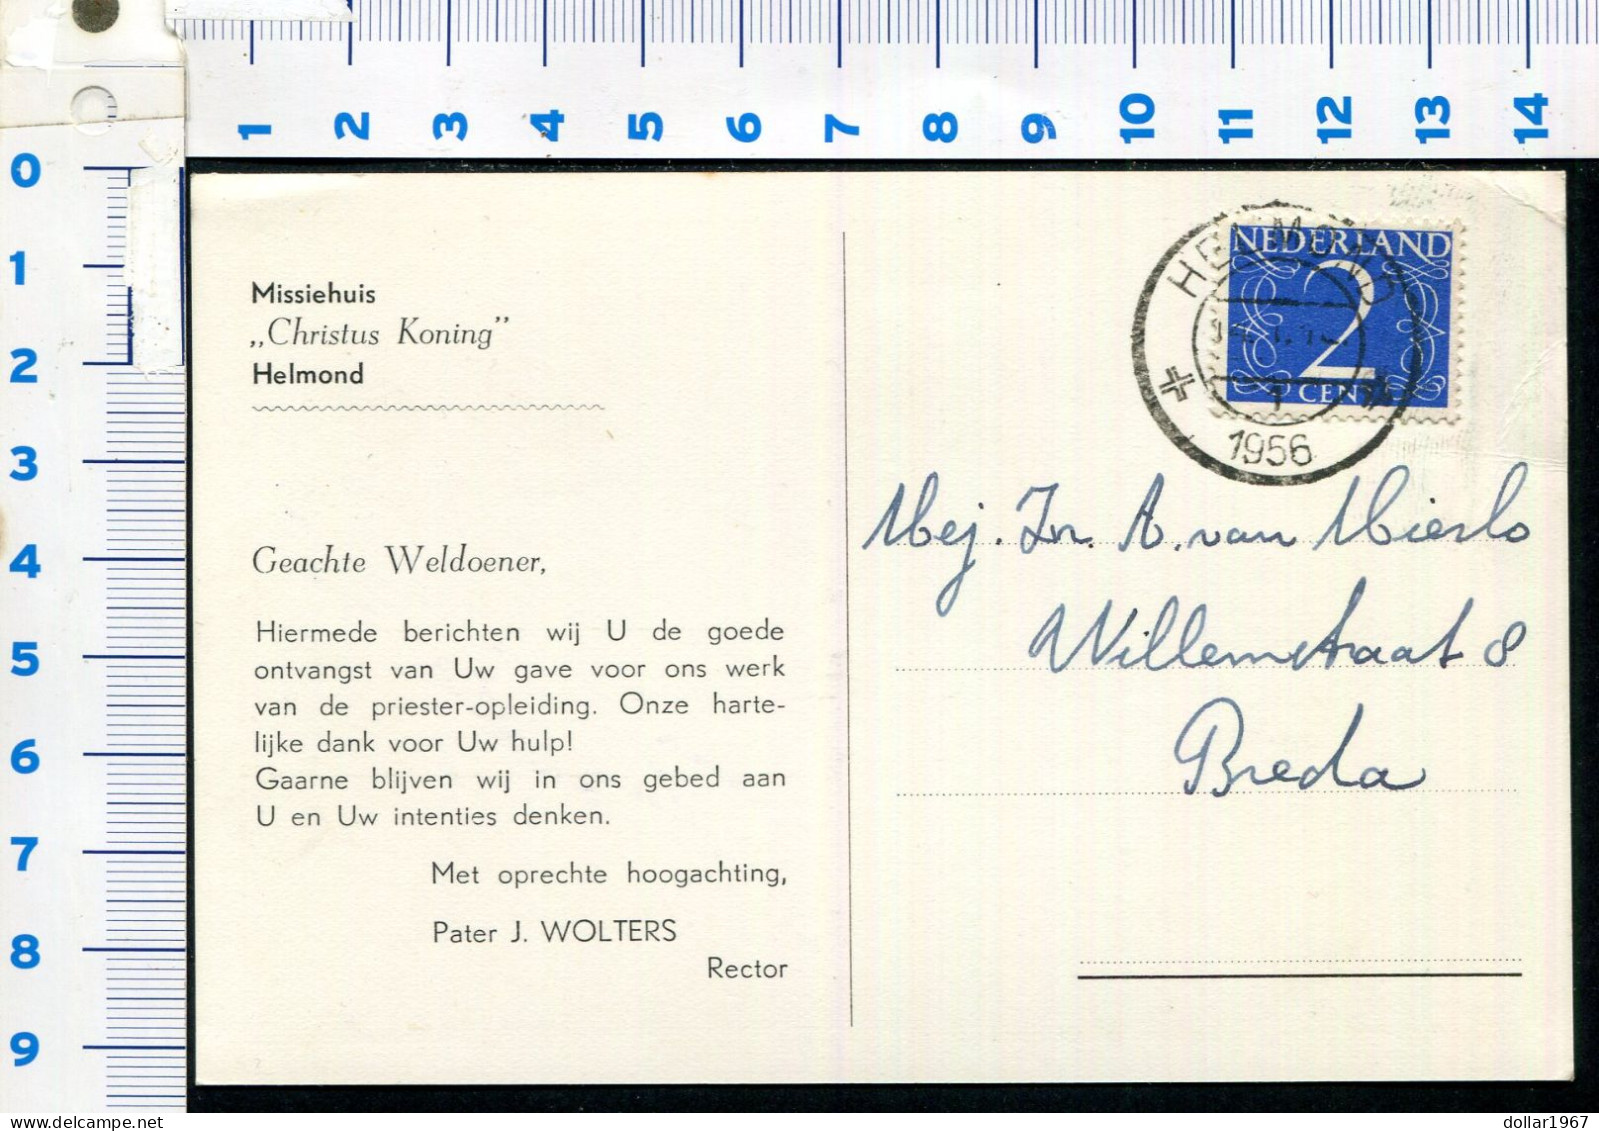 1 2 3 4 5 6 7 8 9 10 11 12 13 14
0
1
2
3
4
5
6
7
8
9
Missiehuis
„Christus Koning”
Helmond
Geachte Weldoener,
Hiermede berichten wij U de goede
ontvangst van Uw gave voor ons werk
van de priester-opleiding. Onze harte-
lijke dank voor Uw hulp!
Gaarne blijven wij in ons gebed aan
U en Uw intenties denken.
Met oprechte hoogachting,
Pater J. WOLTERS
Rector
NEDERLAND
2
CENT
HELMOND
1956
Mej. Jn. A. van Mierlo
Willemstraat 8
Breda
dollar1967